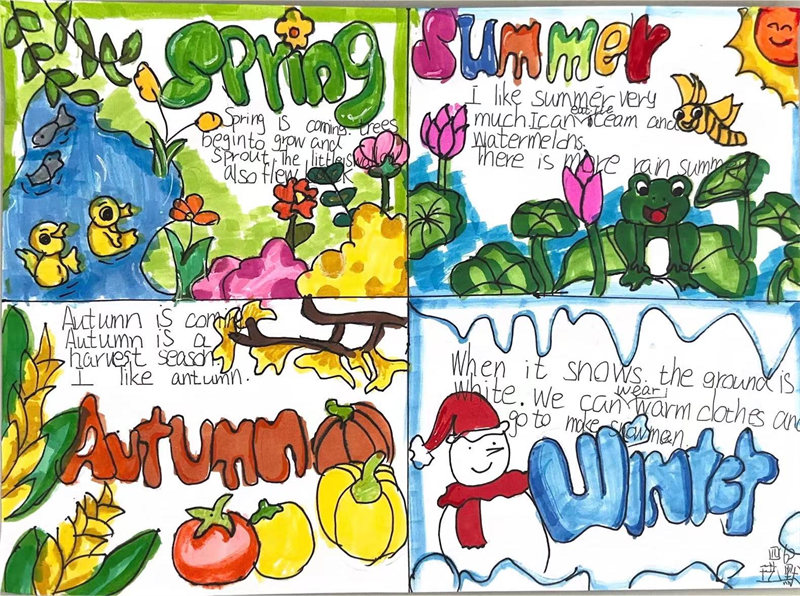 Spring
Spring is coming. trees
begin to grow and
sprout. the little
also flew
Summer
I like summer very
much I can eat ice cream and
watermelons.
There is more rain summer
Autumn is
Autumn is a
harvest season.
I like antumn.
Autumn
When it snows. the ground is
white. We can wear warm clothes and
go to make snowmen.
Winter